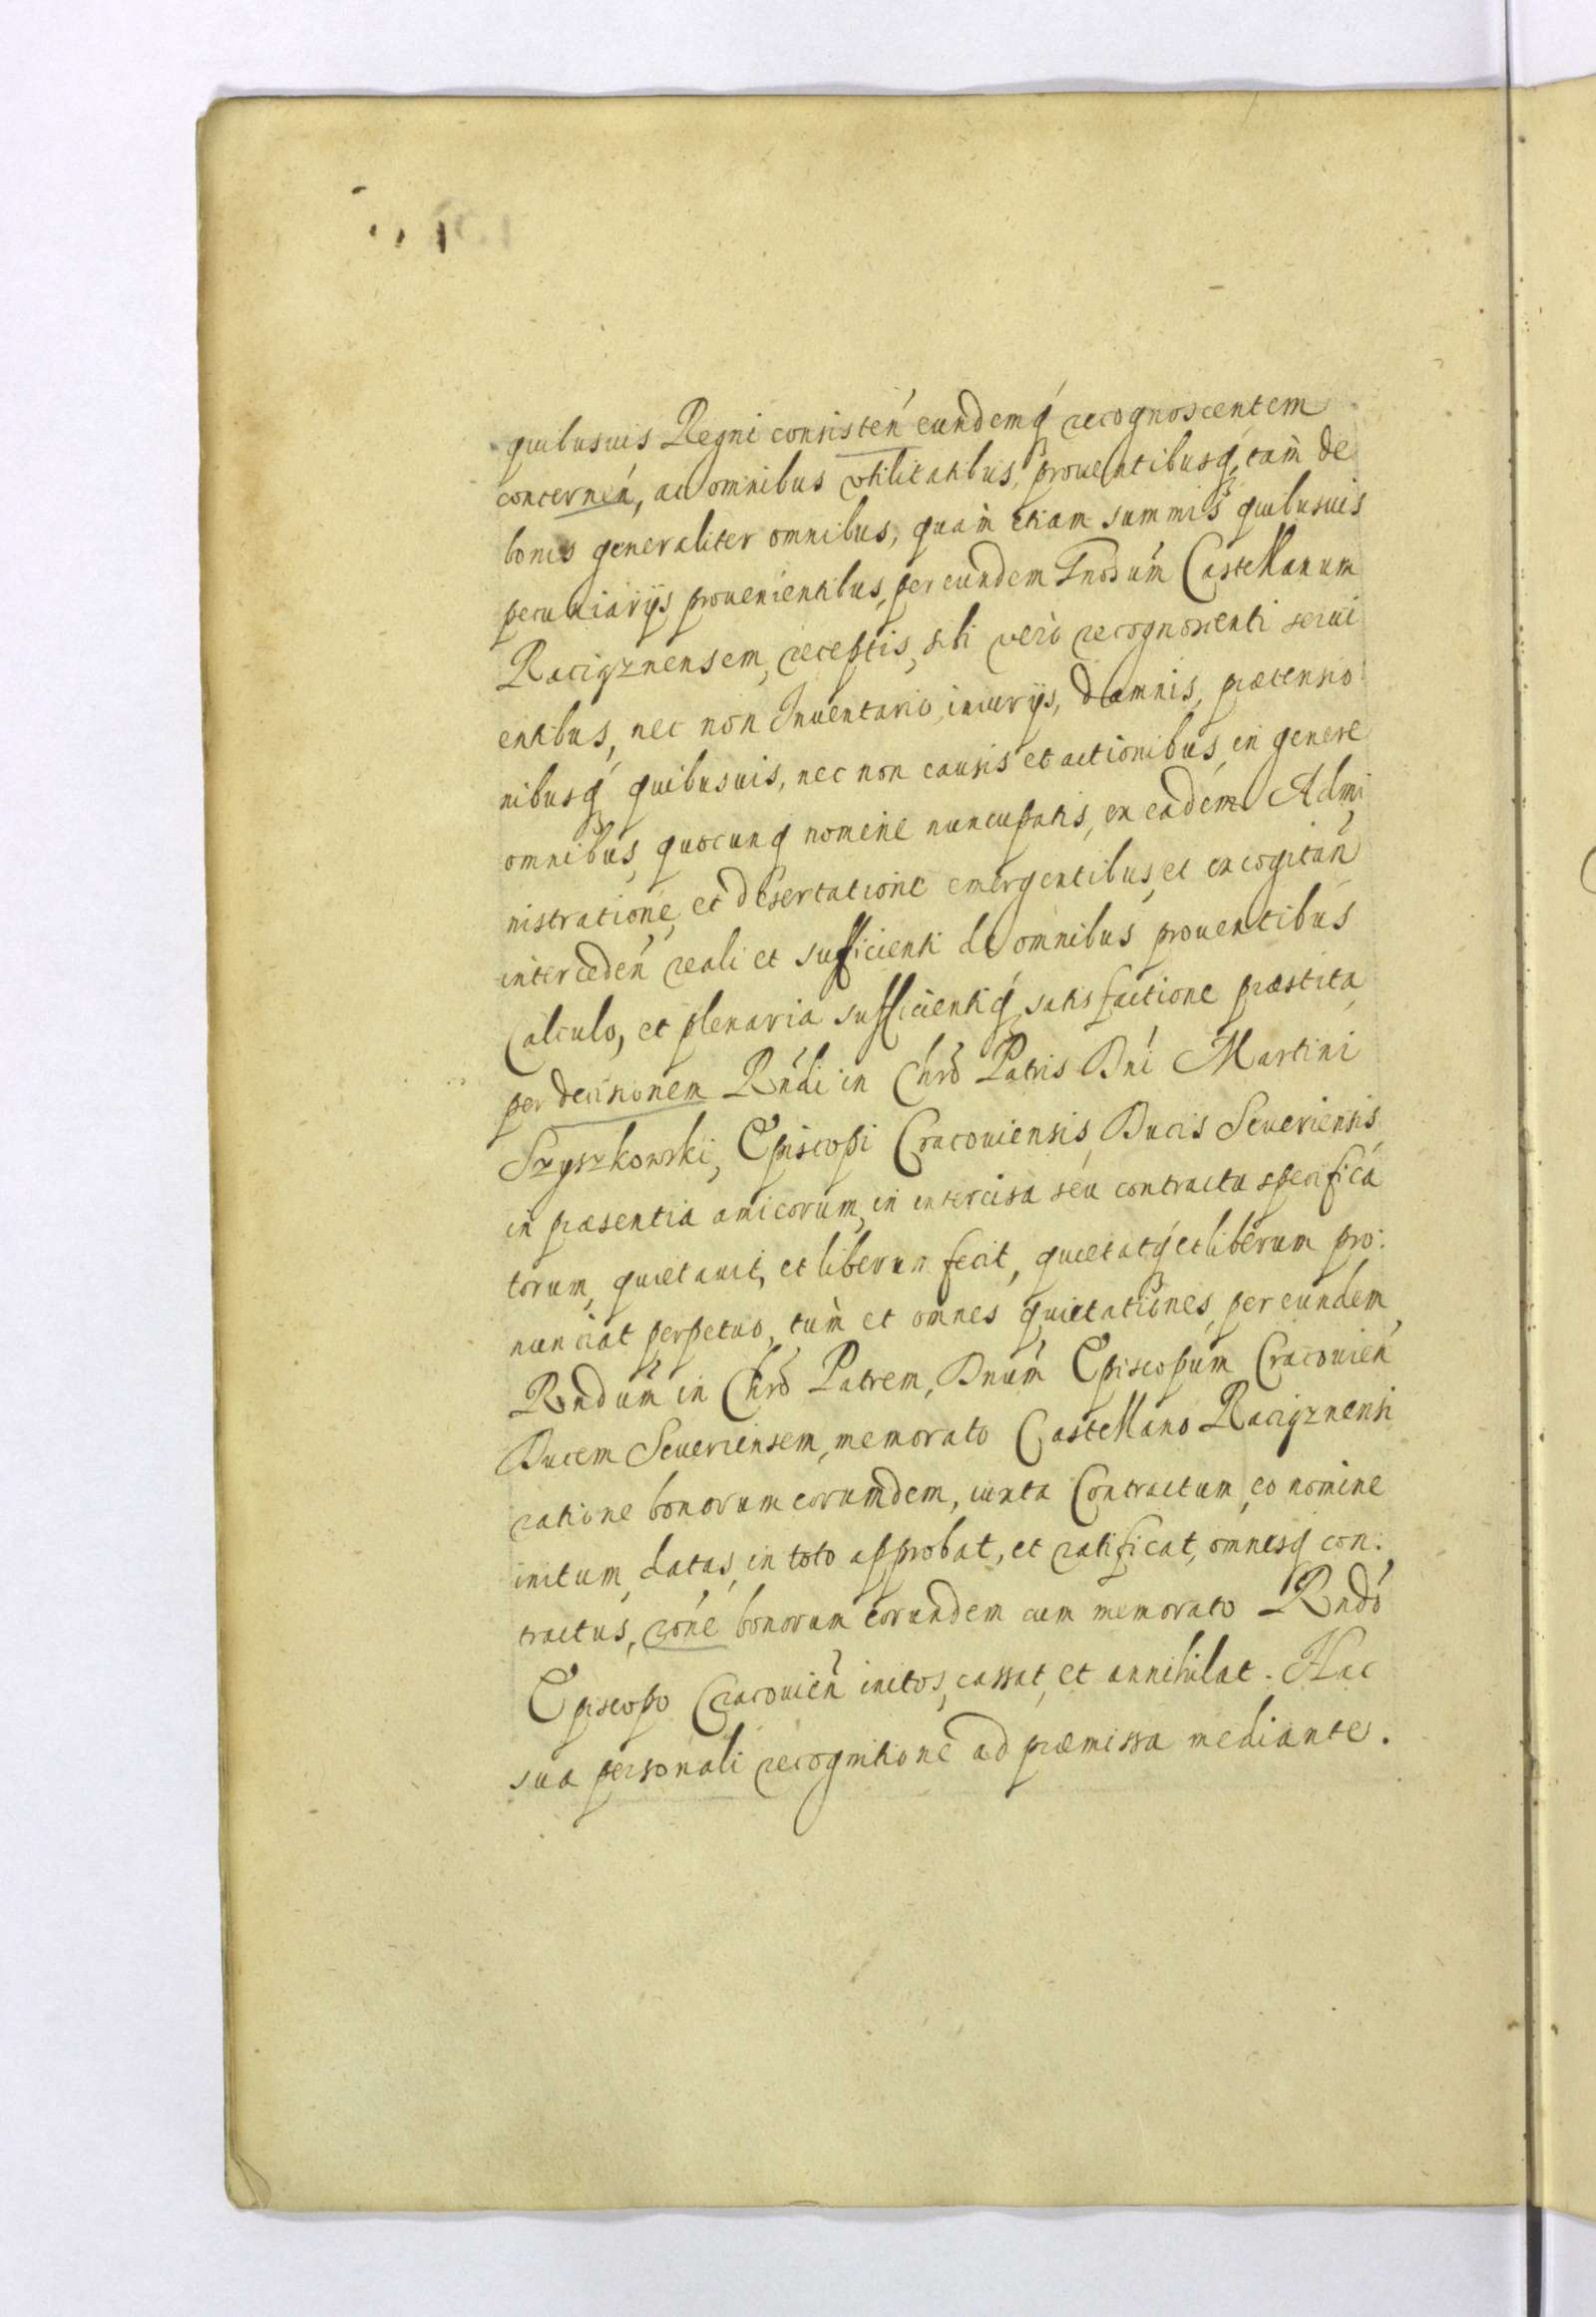 quibusuis Regni consisteń eundemq́ recognoscentem
concerneń, ac omnibus vtilitatibus, prouentibusq́, tam̀ de
bonis generaliter omnibus, quam̀ etiam summis quibusuis
pecuniarijs prouenientibus, per eundem Gnosum̃ Castellanum
Raciąznensem, receptis, sibi verò recognoscenti serui
entibus, nec non Inuentario, iniurijs, damnis, prætensio
nibusq́ quibusuis, nec non causis et actionibus, in genere
omnibus, quocunq́ nomine nuncupatis, ex eadem Admi
nistratione, et desertatione emergentibus, et excogitań
intercedeń reali et sufficienti de omnibus prouentibus
Calculo, et plenaria sufficientiq́ satisfactione præstita
per decisionem Rńdi in Chrõ Patris Dńi Martini
Szyszkowski, Episcopi Cracouiensis, Ducis Seueriensis
in præsentia amicorum, in intercisa seu contractu specifica
torum, quietauit, et liberum fecit, quietatq́ et liberum pro:
nunciat perpetuo, tum̀ et omnes quietationes, per eundem
Rndum̃ in Chrõ Patrem, Dnum̃ Episcopum Cracouień
Ducem Seueriensem, memorato Castellano Raciąznensi
ratione bonorum eorumdem, iuxta Contractum, eo nomine
initum, datas, in toto approbat, et ratificat, omnesq́ con:
tractus, rõne bonorum eorundem cum memorato Rndó
Episcopo Cracouień initos, cassat, et annihilat. Hac
sua personali recognitione ad præmissa mediante.